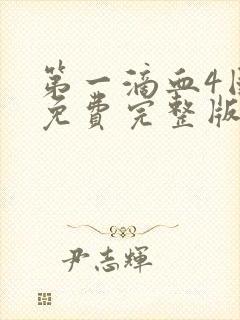 第一滴血4
免费完整版
尹志輝